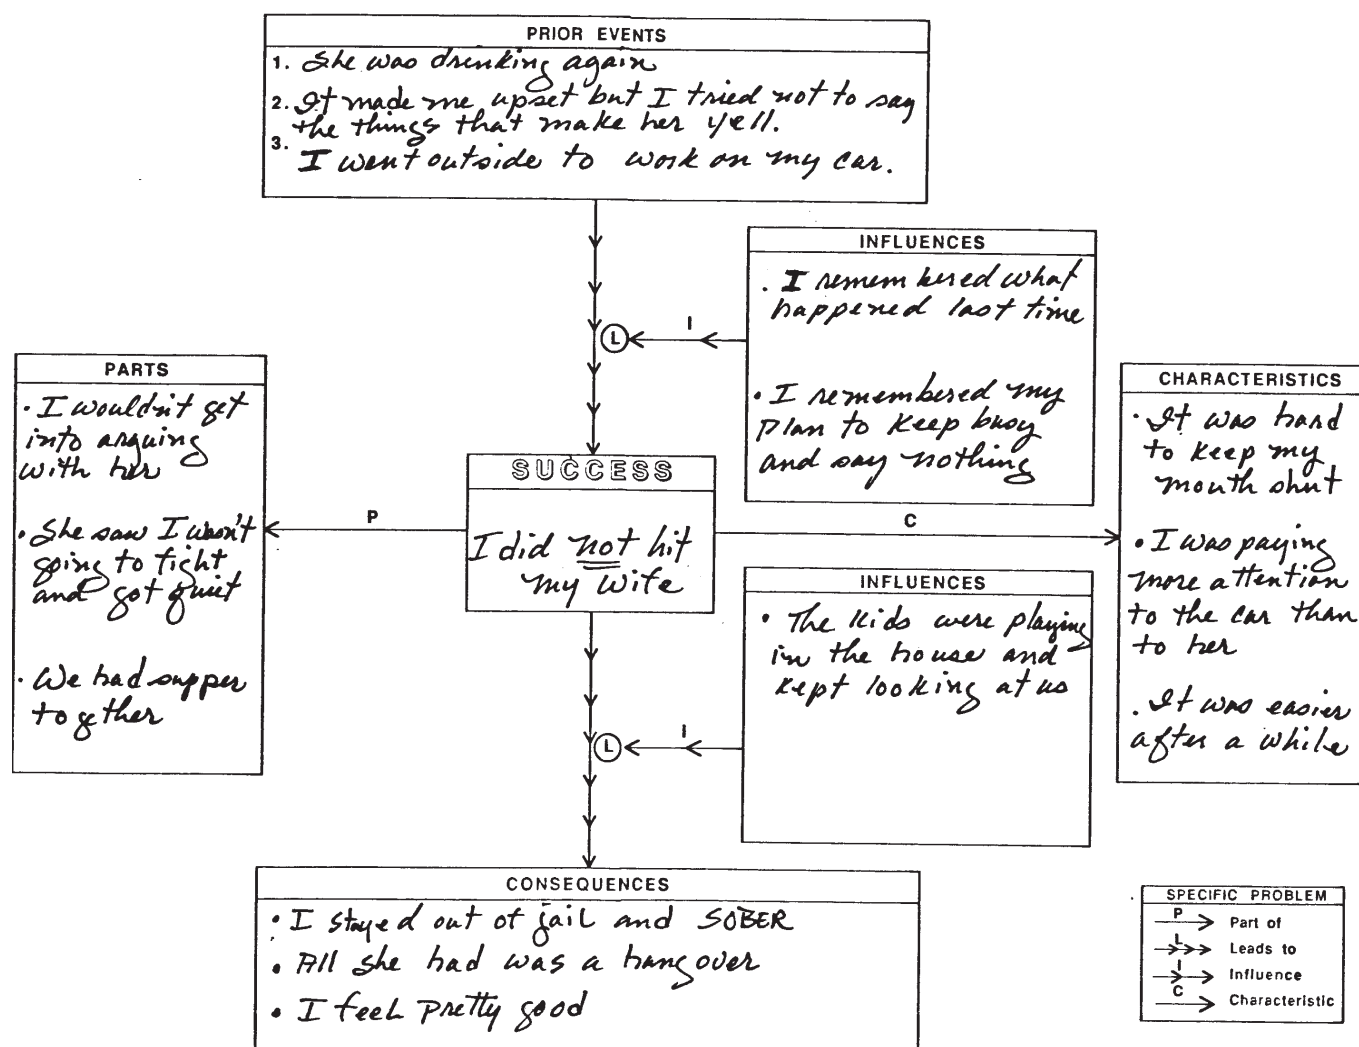 PRIOR EVENTS
1. She was drinking again
2. It made me upset but I tried not to say
the things that make her yell.
3. I went outside to work on my car.
INFLUENCES
. I remembered what
happened last time
• I remembered my
plan to keep busy
and say nothing
L
I
PARTS
• I wouldn't get
into arguing
with her
• She saw I wasn't
going to fight
and got quiet
• We had supper
together
P
SUCCESS
I did not hit
my wife
C
CHARACTERISTICS
• It was hard
to keep my
mouth shut
• I was paying
more attention
to the car than
to her
. It was easier
after a while
INFLUENCES
• The kids were playing
in the house and
kept looking at us
L
I
CONSEQUENCES
• I stayed out of jail and SOBER
• All she had was a hangover
• I feel pretty good
SPECIFIC PROBLEM
P Part of
L Leads to
I Influence
C Characteristic